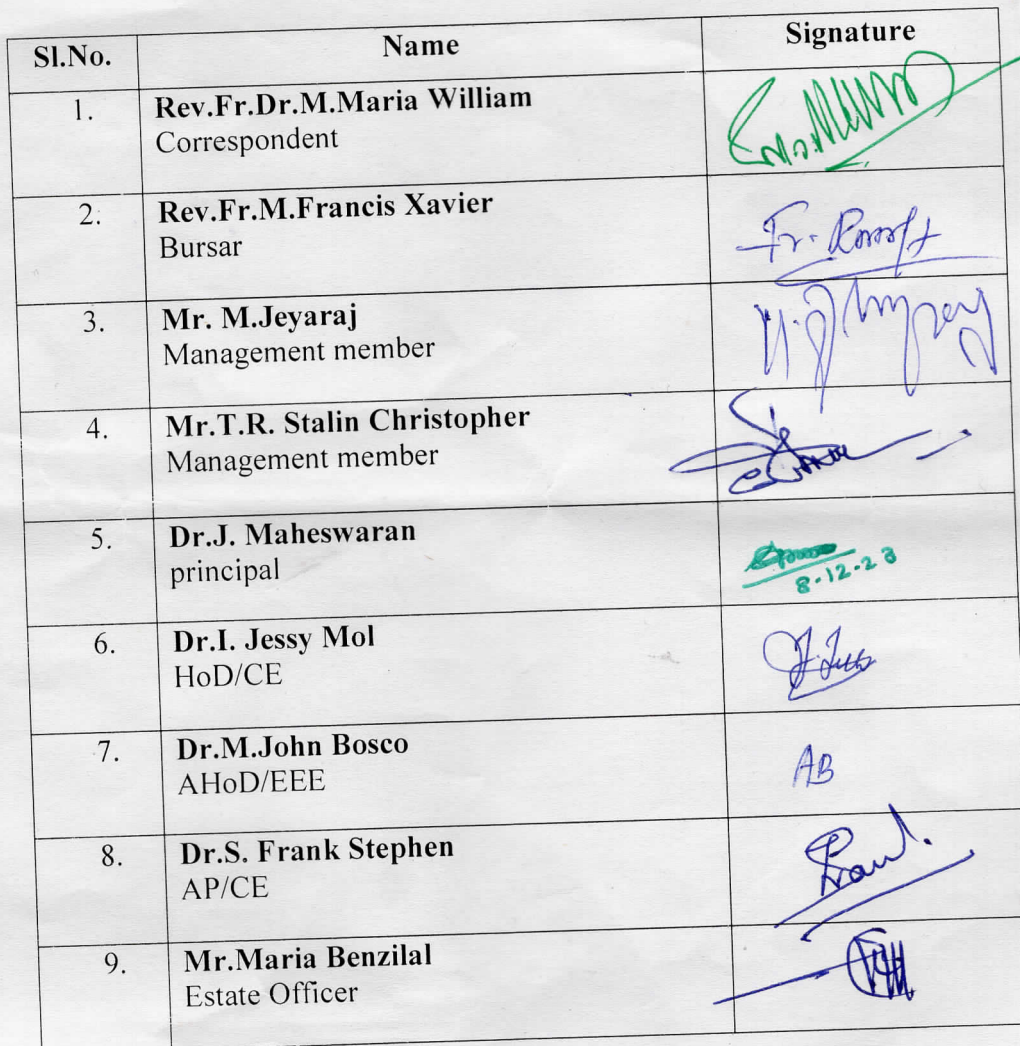 Sl.No. Name Signature
1. Rev.Fr.Dr.M.Maria William
Correspondent
2. Rev.Fr.M.Francis Xavier
Bursar
Fr.
3. Mr. M.Jeyaraj
Management member
4. Mr.T.R. Stalin Christopher
Management member
5. Dr.J. Maheswaran
principal
8-12-23
6. Dr.I. Jessy Mol
HoD/CE
7. Dr.M.John Bosco
AHoD/EEE
AB
8. Dr.S. Frank Stephen
AP/CE
9. Mr.Maria Benzilal
Estate Officer